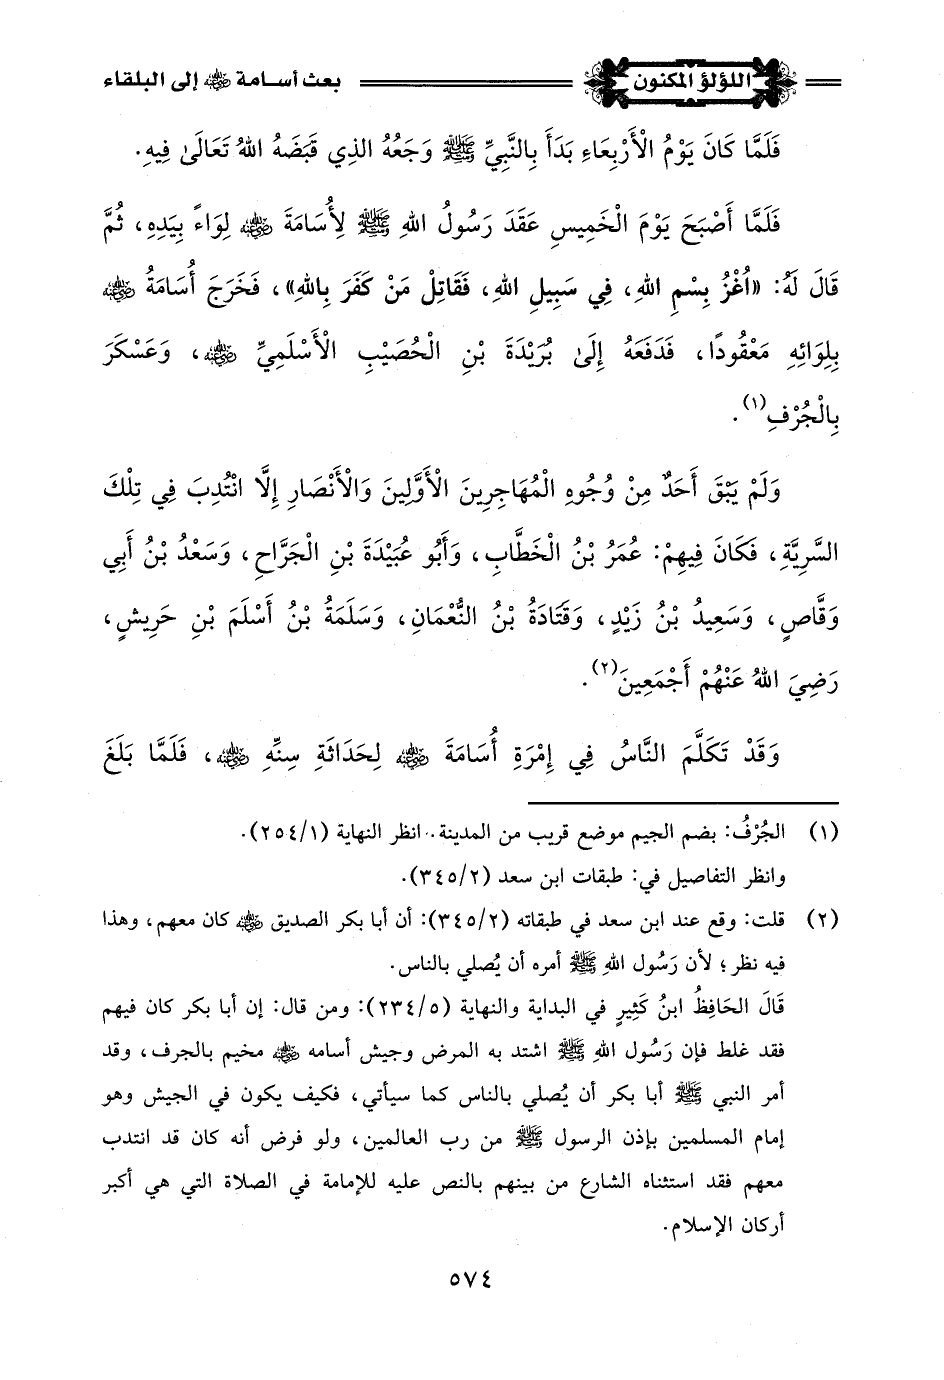 اللؤلؤ المكنون
بعث أسامة ﵁ إلى البلقاء
فَلَمَّا كَانَ يَوْمُ الْأَرْبِعَاءِ بَدَأَ بِالنَّبِيِّ ﷺ وَجَعُهُ الذِي قَبَضَهُ اللهُ تَعَالَىٰ فِيهِ.
فَلَمَّا أَصْبَحَ يَوْمَ الْخَمِيسِ عَقَدَ رَسُولُ اللهِ ﷺ لِأُسَامَةَ ﵁ لِوَاءً بِيَدِهِ، ثُمَّ
قَالَ لَهُ: «اُغْزُ بِسْمِ اللهِ، فِي سَبِيلِ اللهِ، فَقَاتِلْ مَنْ كَفَرَ بِاللهِ»، فَخَرَجَ أُسَامَةُ ﵁
بِلِوَائِهِ مَعْقُودًا، فَدَفَعَهُ إِلَىٰ بُرَيْدَةَ بْنِ الْحُصَيْبِ الْأَسْلَمِيِّ ﵁، وَعَسْكَرَ
بِالْجُرْفِ(١).
وَلَمْ يَبْقَ أَحَدٌ مِنْ وُجُوهِ الْمُهَاجِرِينَ الْأَوَّلِينَ وَالْأَنْصَارِ إِلَّا انْتُدِبَ فِي تِلْكَ
السَّرِيَّةِ، فَكَانَ فِيهِمْ: عُمَرُ بْنُ الْخَطَّابِ، وَأَبُو عُبَيْدَةَ بْنِ الْجَرَّاحِ، وَسَعْدُ بْنُ أَبِي
وَقَّاصٍ، وَسَعِيدُ بْنُ زَيْدٍ، وَقَتَادَةُ بْنُ النُّعْمَانِ، وَسَلَمَةُ بْنُ أَسْلَمَ بْنِ حَرِيشٍ،
رَضِيَ اللهُ عَنْهُمْ أَجْمَعِينَ(٢).
وَقَدْ تَكَلَّمَ النَّاسُ فِي إِمْرَةِ أُسَامَةَ ﵁ لِحَدَاثَةِ سِنِّهِ ﵁، فَلَمَّا بَلَغَ
(١) الجُرْفُ: بضم الجيم موضع قريب من المدينة. انظر النهاية (٢٥٤/١).
وانظر التفاصيل في: طبقات ابن سعد (٣٤٥/٢).
(٢) قلت: وقع عند ابن سعد في طبقاته (٣٤٥/٢): أن أبا بكر الصديق ﵁ كان معهم، وهذا
فيه نظر؛ لأن رَسُول اللهِ ﷺ أمره أن يُصلي بالناس.
قَالَ الحَافِظُ ابنُ كَثِيرٍ في البداية والنهاية (٢٣٤/٥): ومن قال: إن أبا بكر كان فيهم
فقد غلط فإن رَسُول اللهِ ﷺ اشتد به المرض وجيش أسامه ﵁ مخيم بالجرف، وقد
أمر النبي ﷺ أبا بكر أن يُصلي بالناس كما سيأتي، فكيف يكون في الجيش وهو
إمام المسلمين بإذن الرسول ﷺ من رب العالمين، ولو فرض أنه كان قد انتدب
معهم فقد استثناه الشارع من بينهم بالنص عليه للإمامة في الصلاة التي هي أكبر
أركان الإسلام.
٥٧٤